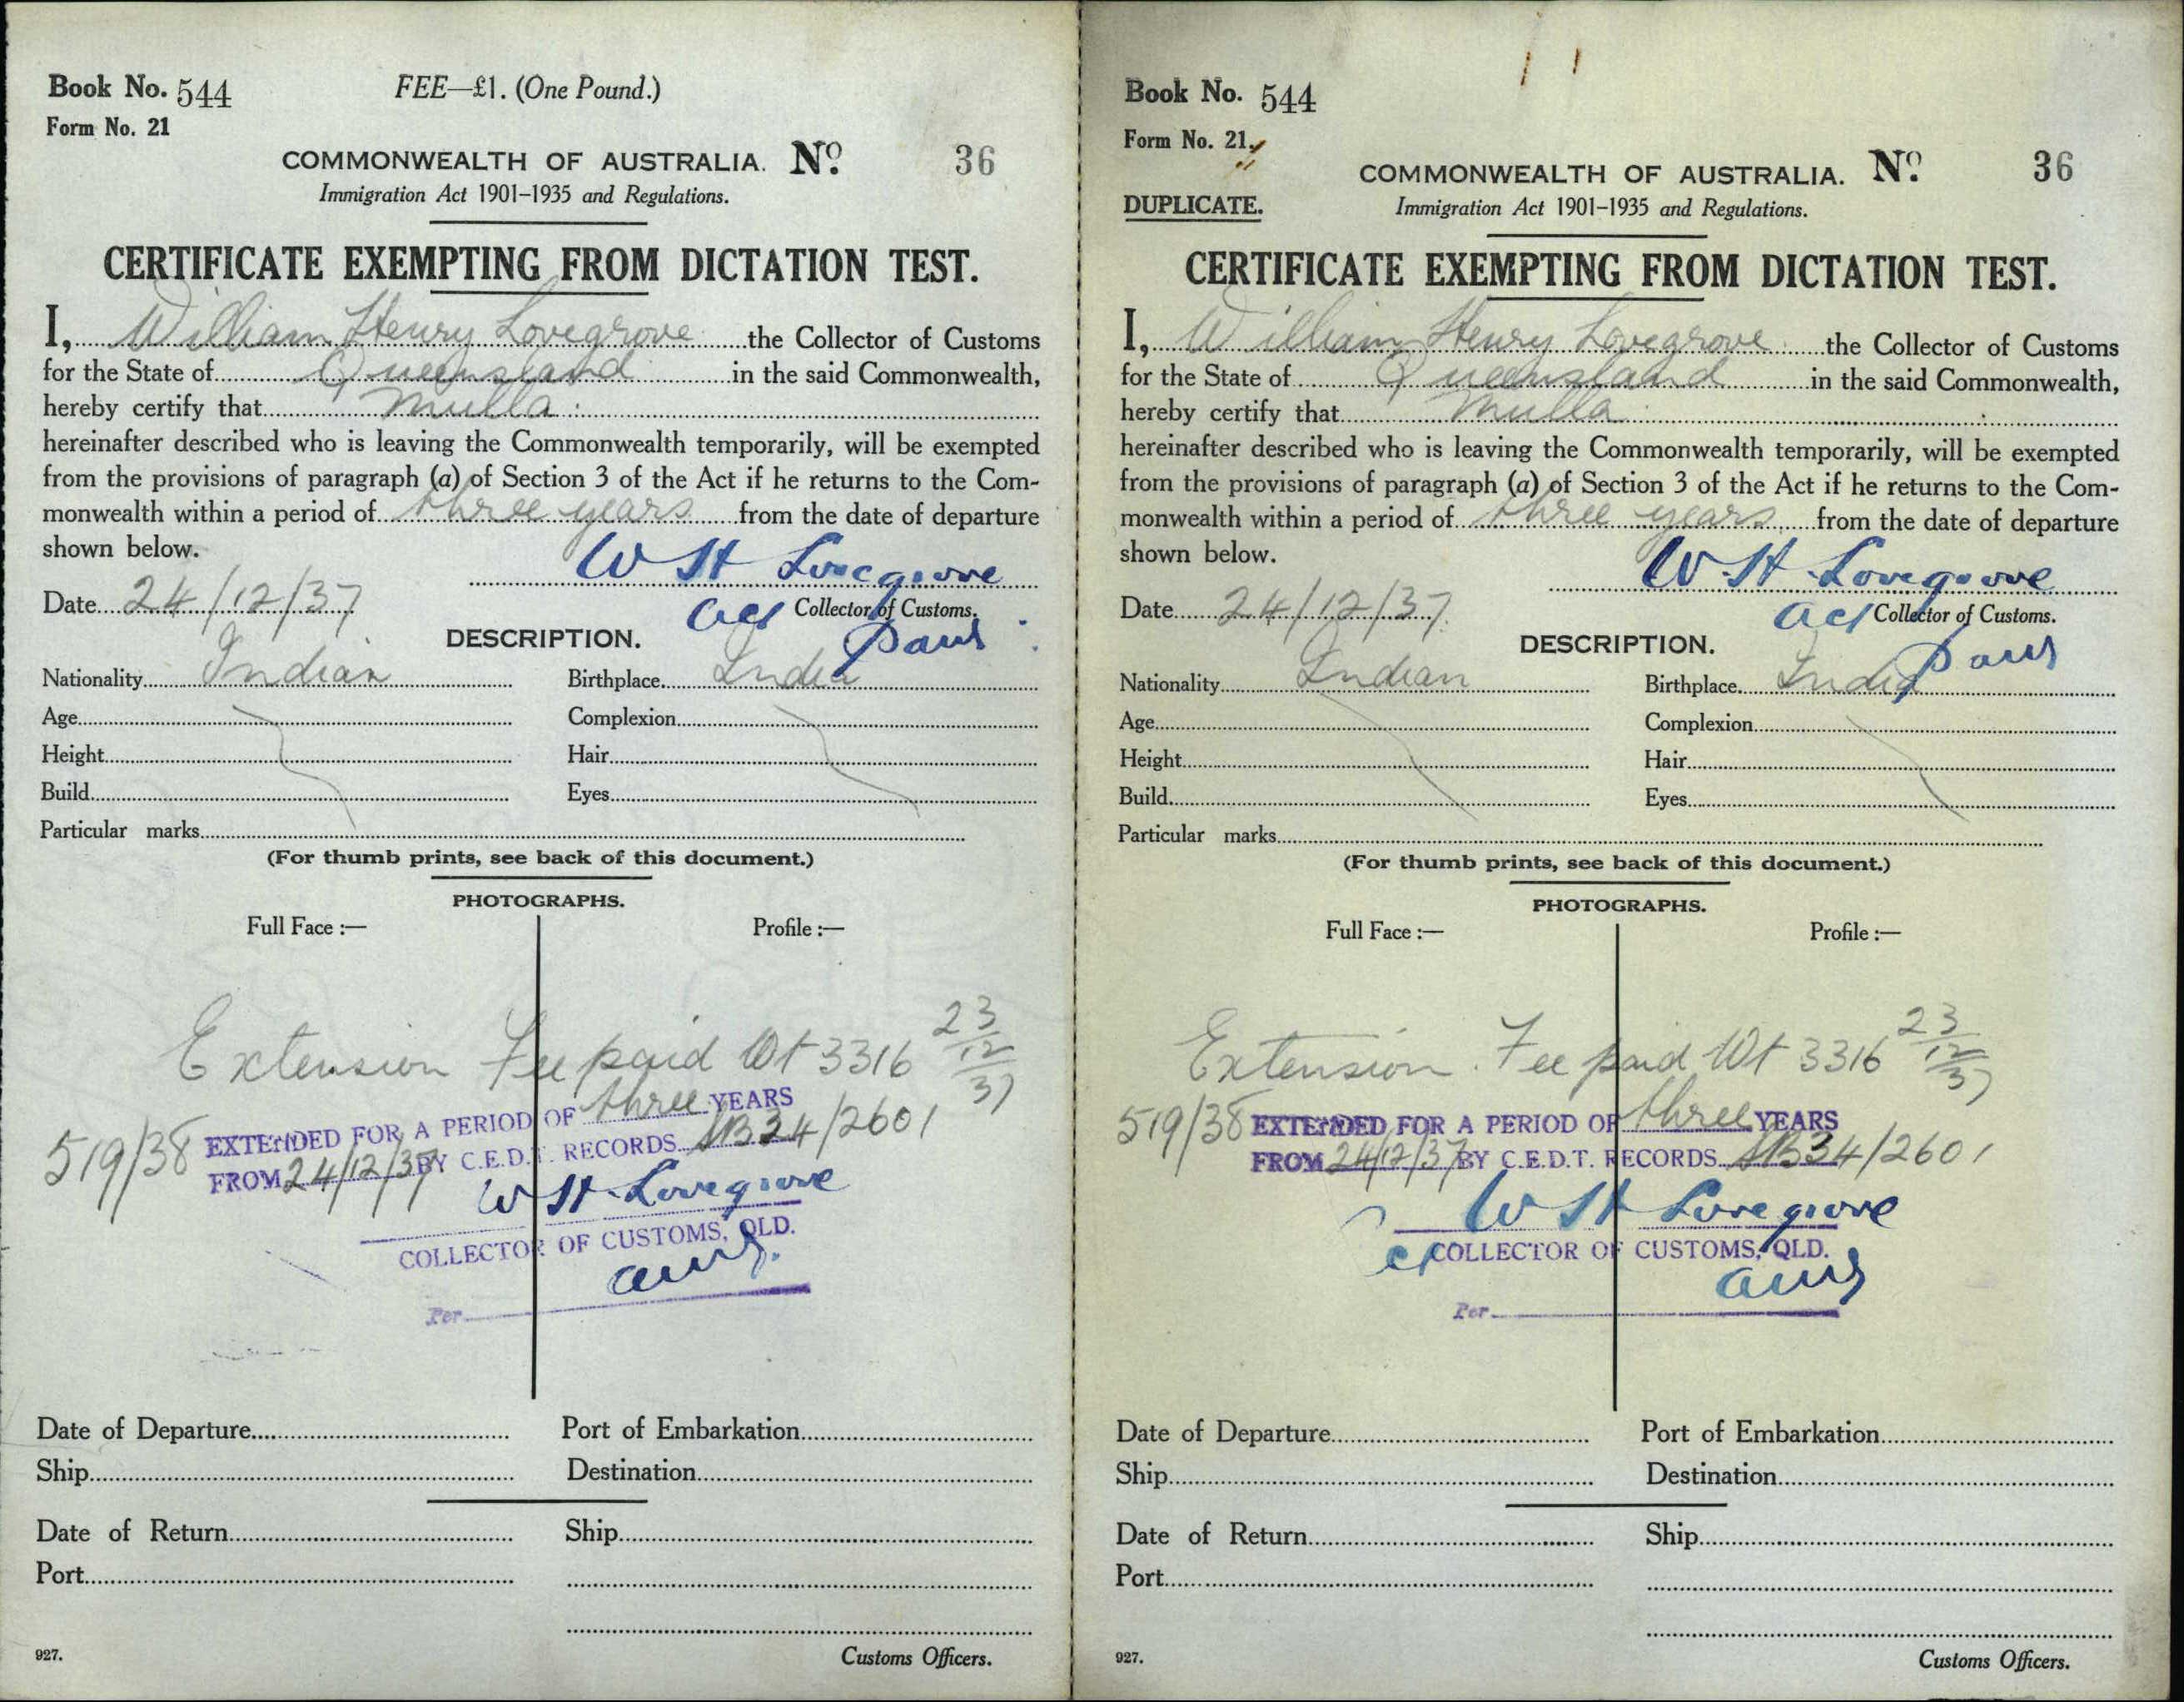 Book No. 544
FEE—£1. (One Pound.)
Form No. 21
COMMONWEALTH OF AUSTRALIA. No. 36
Immigration Act 1901–1935 and Regulations.
CERTIFICATE EXEMPTING FROM DICTATION TEST.
I, William Henry Lovegrove the Collector of Customs
for the State of Queensland in the said Commonwealth,
hereby certify that Mulla
hereinafter described who is leaving the Commonwealth temporarily, will be exempted
from the provisions of paragraph (a) of Section 3 of the Act if he returns to the Com-
monwealth within a period of three years from the date of departure
shown below.
W H Lovegrove
Date 24/12/37
Collector of Customs.
DESCRIPTION.
Nationality Indian Birthplace India
Age Complexion
Height Hair
Build Eyes
Particular marks
(For thumb prints, see back of this document.)
PHOTOGRAPHS.
Full Face :— Profile :—
Extension Fee paid 3316 23/12/37
519/38 EXTENDED FOR A PERIOD OF three YEARS
FROM 24/12/37 BY C.E.D.T. RECORDS 34/2601
W H Lovegrove
COLLECTOR OF CUSTOMS, QLD.
Per
Date of Departure Port of Embarkation
Ship Destination
Date of Return Ship
Port
927. Customs Officers.
Book No. 544
Form No. 21.
COMMONWEALTH OF AUSTRALIA. No. 36
DUPLICATE.
Immigration Act 1901–1935 and Regulations.
CERTIFICATE EXEMPTING FROM DICTATION TEST.
I, William Henry Lovegrove the Collector of Customs
for the State of Queensland in the said Commonwealth,
hereby certify that Mulla
hereinafter described who is leaving the Commonwealth temporarily, will be exempted
from the provisions of paragraph (a) of Section 3 of the Act if he returns to the Com-
monwealth within a period of three years from the date of departure
shown below.
W. H. Lovegrove
Date 24/12/37.
Collector of Customs.
DESCRIPTION.
Nationality Indian Birthplace India
Age Complexion
Height Hair
Build Eyes
Particular marks
(For thumb prints, see back of this document.)
PHOTOGRAPHS.
Full Face :— Profile :—
Extension. Fee paid 3316 23/12/37
519/38 EXTENDED FOR A PERIOD OF three YEARS
FROM 24/12/37 BY C.E.D.T. RECORDS 34/2601
W H Lovegrove
COLLECTOR OF CUSTOMS, QLD.
Per
Date of Departure Port of Embarkation
Ship Destination
Date of Return Ship
Port
927. Customs Officers.